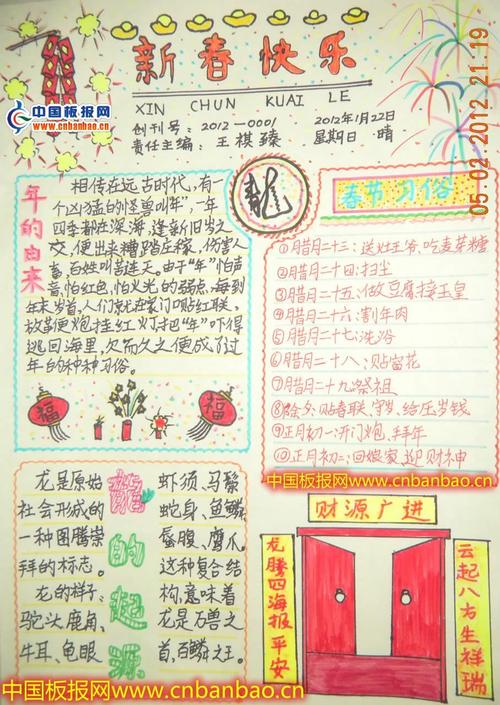 新春快乐
XIN CHUN KUAI LE
创刊号：2012-0001
2012年1月22日
责任主编：王棋臻
星期日·晴
中国板报网
www.cnbanbao.cn
05.02.2012 21:19
年的由来
相传在远古时代，有一
个凶猛的怪兽叫年"，一年
四季都在深海，逢新旧岁之
交，便出来糟踏庄稼，伤害人
畜，百姓叫苦连天。由于"年"怕声
音，怕红色，怕火光的弱点，每到
年末岁首，人们就在家门口贴红联，
放草便炮挂红灯，把"年"吓得
逃回海里，久而久之便成了过
年的种种习俗。
福
福
龍
春节习俗
①月腊月二十三：送灶王爷、吃麦芽糖
②月腊月二十四：扫尘
③月腊月二十五：做豆腐接玉皇
④月腊月二十六：割年肉
⑤月腊月二十七：洗浴
⑥月腊月二十八：贴窗花
⑦月腊月二十九：祭祖
⑧除夕：贴春联、守岁、给压岁钱
⑨正月初一：开门炮、拜年
⑩正月初二：回娘家、迎财神
中国板报网www.cnbanbao.cn
龙的起源
龙是原始
社会形成的
一种图腾崇
拜的标志。
龙的样子：
驼头、鹿角、
牛耳、龟眼
虾须、马鬃
蛇身、鱼鳞
蜃腹、鹰爪。
这种复合结
构，意味着
龙是万兽之
首，百鳞之王。
财源广进
龙腾四海报平安
云起八方生祥瑞
中国板报网www.cnbanbao.cn